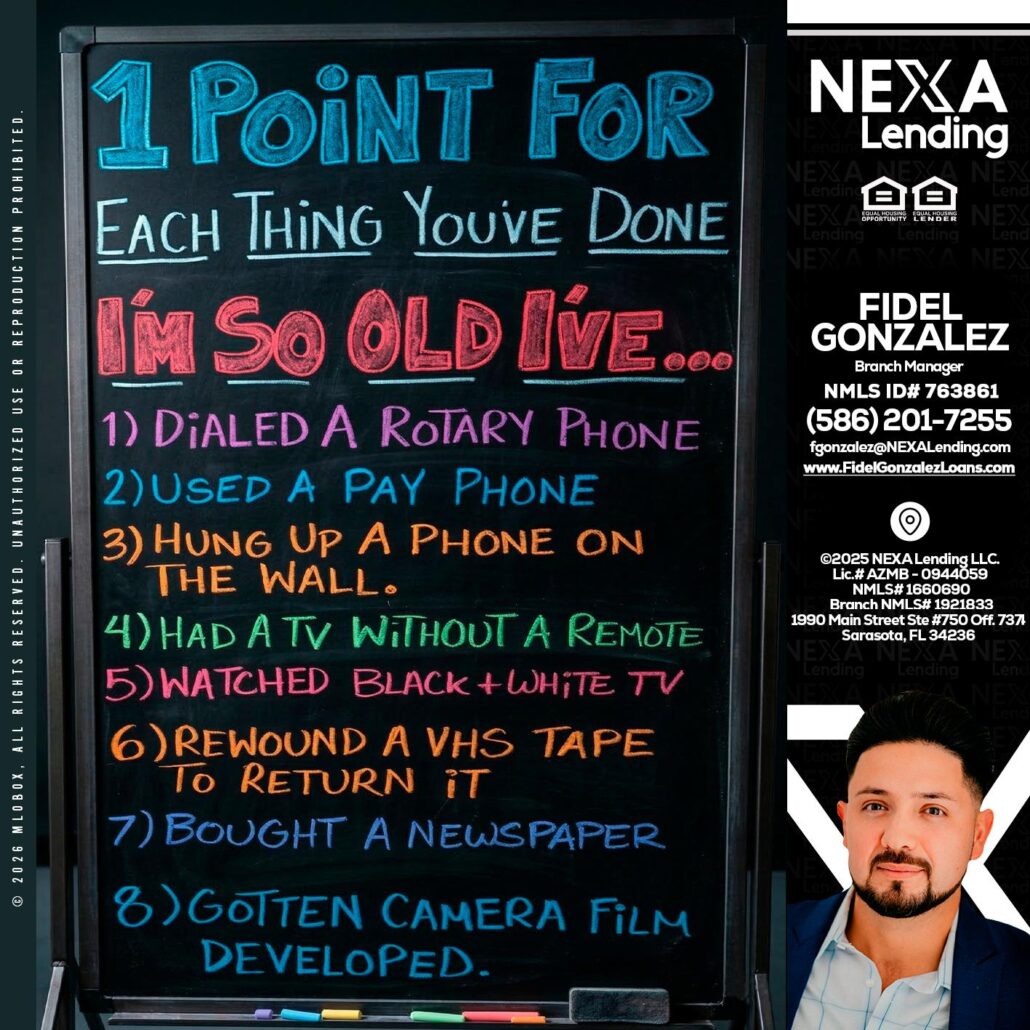 © 2026 MLOBOX, ALL RIGHTS RESERVED. UNAUTHORIZED USE OR REPRODUCTION PROHIBITED.
1 POiNT FOR
EACH THING YOU'VE DONE
I'M SO OLD I'VE...
1) DiALED A ROTARY PHONE
2) USED A PAY PHONE
3) HUNG UP A PHONE ON
THE WALL.
4) HAD A TV WiTHOUT A REMOTE
5) WATCHED BLACK + WHiTE TV
6) REWOUND A VHS TAPE
TO RETURN iT
7) BOUGHT A NEWSPAPER
8) GOTTEN CAMERA FiLM
DEVELOPED.
NEXA
Lending
EQUAL HOUSING
OPPORTUNITY
EQUAL HOUSING
LENDER
FIDEL
GONZALEZ
Branch Manager
NMLS ID# 763861
(586) 201-7255
fgonzalez@NEXALending.com
www.FidelGonzalezLoans.com
©2025 NEXA Lending LLC.
Lic.# AZMB - 0944059
NMLS# 1660690
Branch NMLS# 1921833
1990 Main Street Ste #750 Off. 737A
Sarasota, FL 34236